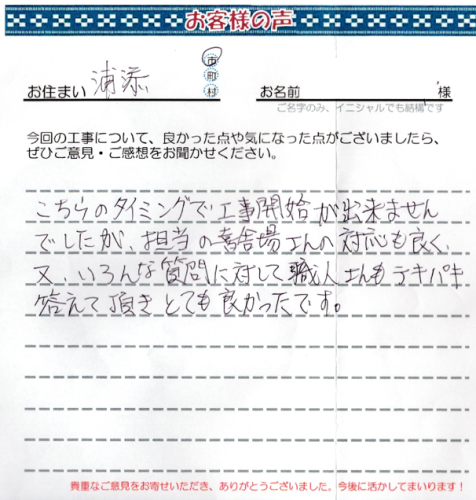 お客様の声
お住まい 浦添 市 町 村
お名前 様
ご名字のみ、イニシャルでも結構です
今回の工事について、良かった点や気になった点がございましたら、
ぜひご意見・ご感想をお聞かせください。
こちらのタイミングで工事開始が出来ません
でしたが、担当の喜舎場さんの対応も良く、
又、いろんな質問に対して職人さんもテキパキ
答えて頂きとても良かったです。
貴重なご意見をお寄せいただき、ありがとうございました。今後に活かしてまいります！